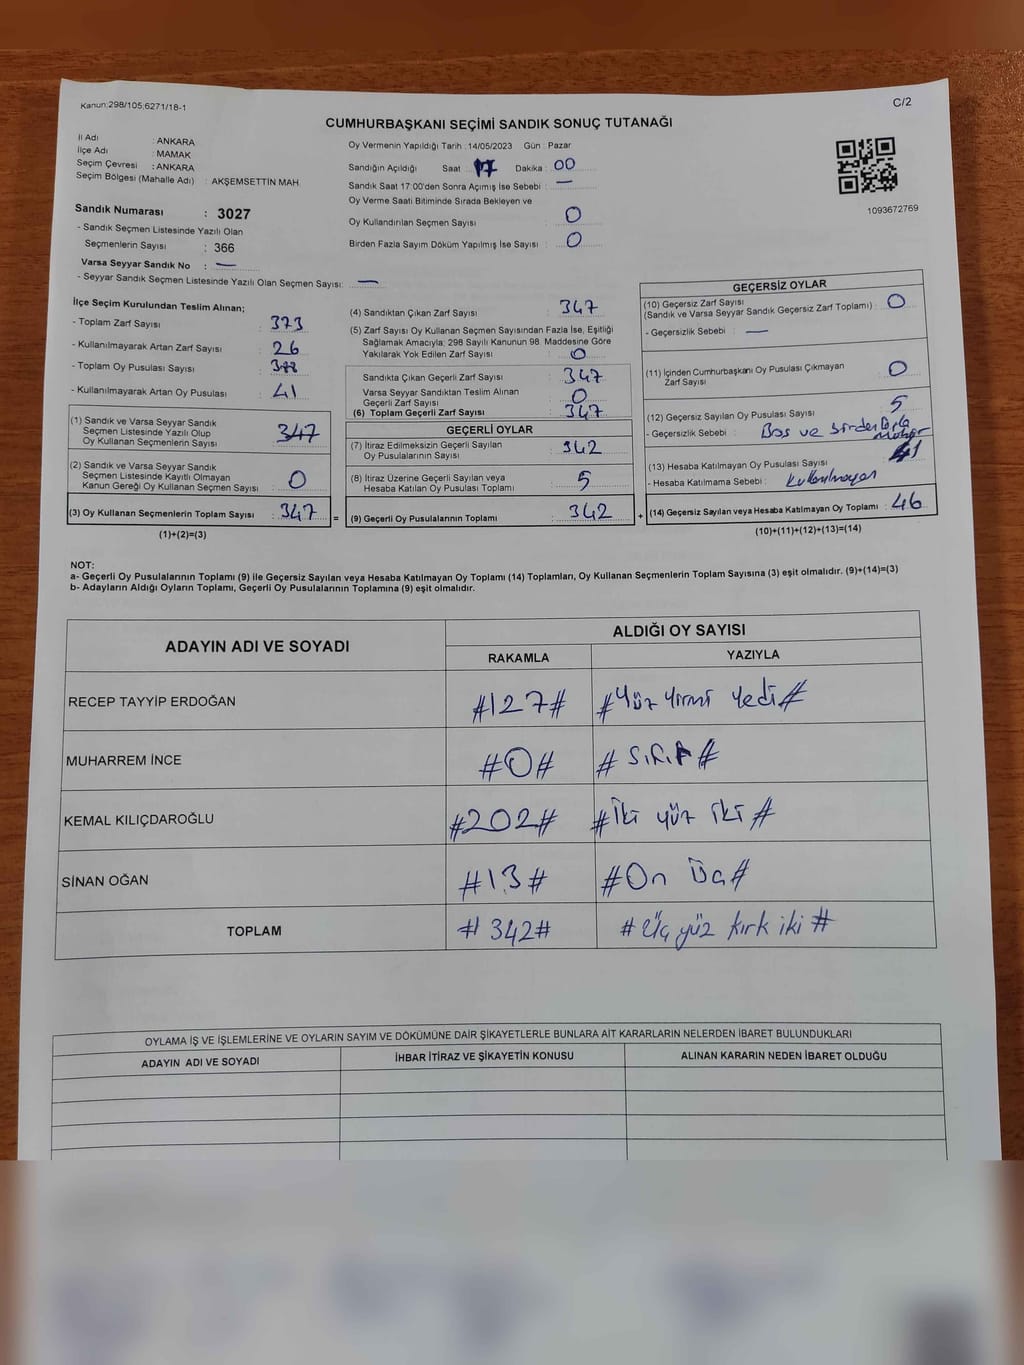 Kanun:298/105;6271/18-1
C/2
CUMHURBAŞKANI SEÇİMİ SANDIK SONUÇ TUTANAĞI
İl Adı : ANKARA
İlçe Adı : MAMAK
Seçim Çevresi : ANKARA
Seçim Bölgesi (Mahalle Adı) : AKŞEMSETTİN MAH.
Oy Vermenin Yapıldığı Tarih :14/05/2023 Gün : Pazar
Sandığın Açıldığı Saat : 17 Dakika : 00
Sandık Saat 17:00'den Sonra Açılmış İse Sebebi : —
Oy Verme Saati Bitiminde Sırada Bekleyen ve
Oy Kullandırılan Seçmen Sayısı : 0
Birden Fazla Sayım Döküm Yapılmış İse Sayısı : 0
1093672769
Sandık Numarası : 3027
- Sandık Seçmen Listesinde Yazılı Olan
Seçmenlerin Sayısı : 366
Varsa Seyyar Sandık No : —
- Seyyar Sandık Seçmen Listesinde Yazılı Olan Seçmen Sayısı: —
İlçe Seçim Kurulundan Teslim Alınan;
- Toplam Zarf Sayısı : 373
- Kullanılmayarak Artan Zarf Sayısı : 26
- Toplam Oy Pusulası Sayısı :
- Kullanılmayarak Artan Oy Pusulası : 41
(1) Sandık ve Varsa Seyyar Sandık
Seçmen Listesinde Yazılı Olup
Oy Kullanan Seçmenlerin Sayısı : 347
(2) Sandık ve Varsa Seyyar Sandık
Seçmen Listesinde Kayıtlı Olmayan
Kanun Gereği Oy Kullanan Seçmen Sayısı : 0
(3) Oy Kullanan Seçmenlerin Toplam Sayısı : 347 =
(1)+(2)=(3)
(4) Sandıktan Çıkan Zarf Sayısı : 347
(5) Zarf Sayısı Oy Kullanan Seçmen Sayısından Fazla İse, Eşitliği
Sağlamak Amacıyla; 298 Sayılı Kanunun 98. Maddesine Göre
Yakılarak Yok Edilen Zarf Sayısı : 0
Sandıkta Çıkan Geçerli Zarf Sayısı : 347
Varsa Seyyar Sandıktan Teslim Alınan
Geçerli Zarf Sayısı : 0
(6) Toplam Geçerli Zarf Sayısı : 347
GEÇERLİ OYLAR
(7) İtiraz Edilmeksizin Geçerli Sayılan
Oy Pusulalarının Sayısı : 342
(8) İtiraz Üzerine Geçerli Sayılan veya
Hesaba Katılan Oy Pusulası Toplamı : 5
(9) Geçerli Oy Pusulalarının Toplamı : 342 +
GEÇERSİZ OYLAR
(10) Geçersiz Zarf Sayısı
(Sandık ve Varsa Seyyar Sandık Geçersiz Zarf Toplamı) : 0
- Geçersizlik Sebebi : —
(11) İçinden Cumhurbaşkanı Oy Pusulası Çıkmayan
Zarf Sayısı : 0
(12) Geçersiz Sayılan Oy Pusulası Sayısı : 5
- Geçersizlik Sebebi : Boş ve birden fazla
mühür
(13) Hesaba Katılmayan Oy Pusulası Sayısı : 41
- Hesaba Katılmama Sebebi : Kullanılmayan
(14) Geçersiz Sayılan veya Hesaba Katılmayan Oy Toplamı : 46
(10)+(11)+(12)+(13)=(14)
NOT:
a- Geçerli Oy Pusulalarının Toplamı (9) ile Geçersiz Sayılan veya Hesaba Katılmayan Oy Toplamı (14) Toplamları, Oy Kullanan Seçmenlerin Toplam Sayısına (3) eşit olmalıdır. (9)+(14)=(3)
b- Adayların Aldığı Oyların Toplamı, Geçerli Oy Pusulalarının Toplamına (9) eşit olmalıdır.
ADAYIN ADI VE SOYADI
ALDIĞI OY SAYISI
RAKAMLA YAZIYLA
RECEP TAYYİP ERDOĞAN #127# #Yüz yirmi yedi#
MUHARREM İNCE #0# # Sıfır #
KEMAL KILIÇDAROĞLU #202# #İki yüz iki #
SİNAN OĞAN #13# #On Üç#
TOPLAM # 342# # Üç yüz kırk iki #
OYLAMA İŞ VE İŞLEMLERİNE VE OYLARIN SAYIM VE DÖKÜMÜNE DAİR ŞİKAYETLERLE BUNLARA AİT KARARLARIN NELERDEN İBARET BULUNDUKLARI
ADAYIN ADI VE SOYADI İHBAR İTİRAZ VE ŞİKAYETİN KONUSU ALINAN KARARIN NEDEN İBARET OLDUĞU